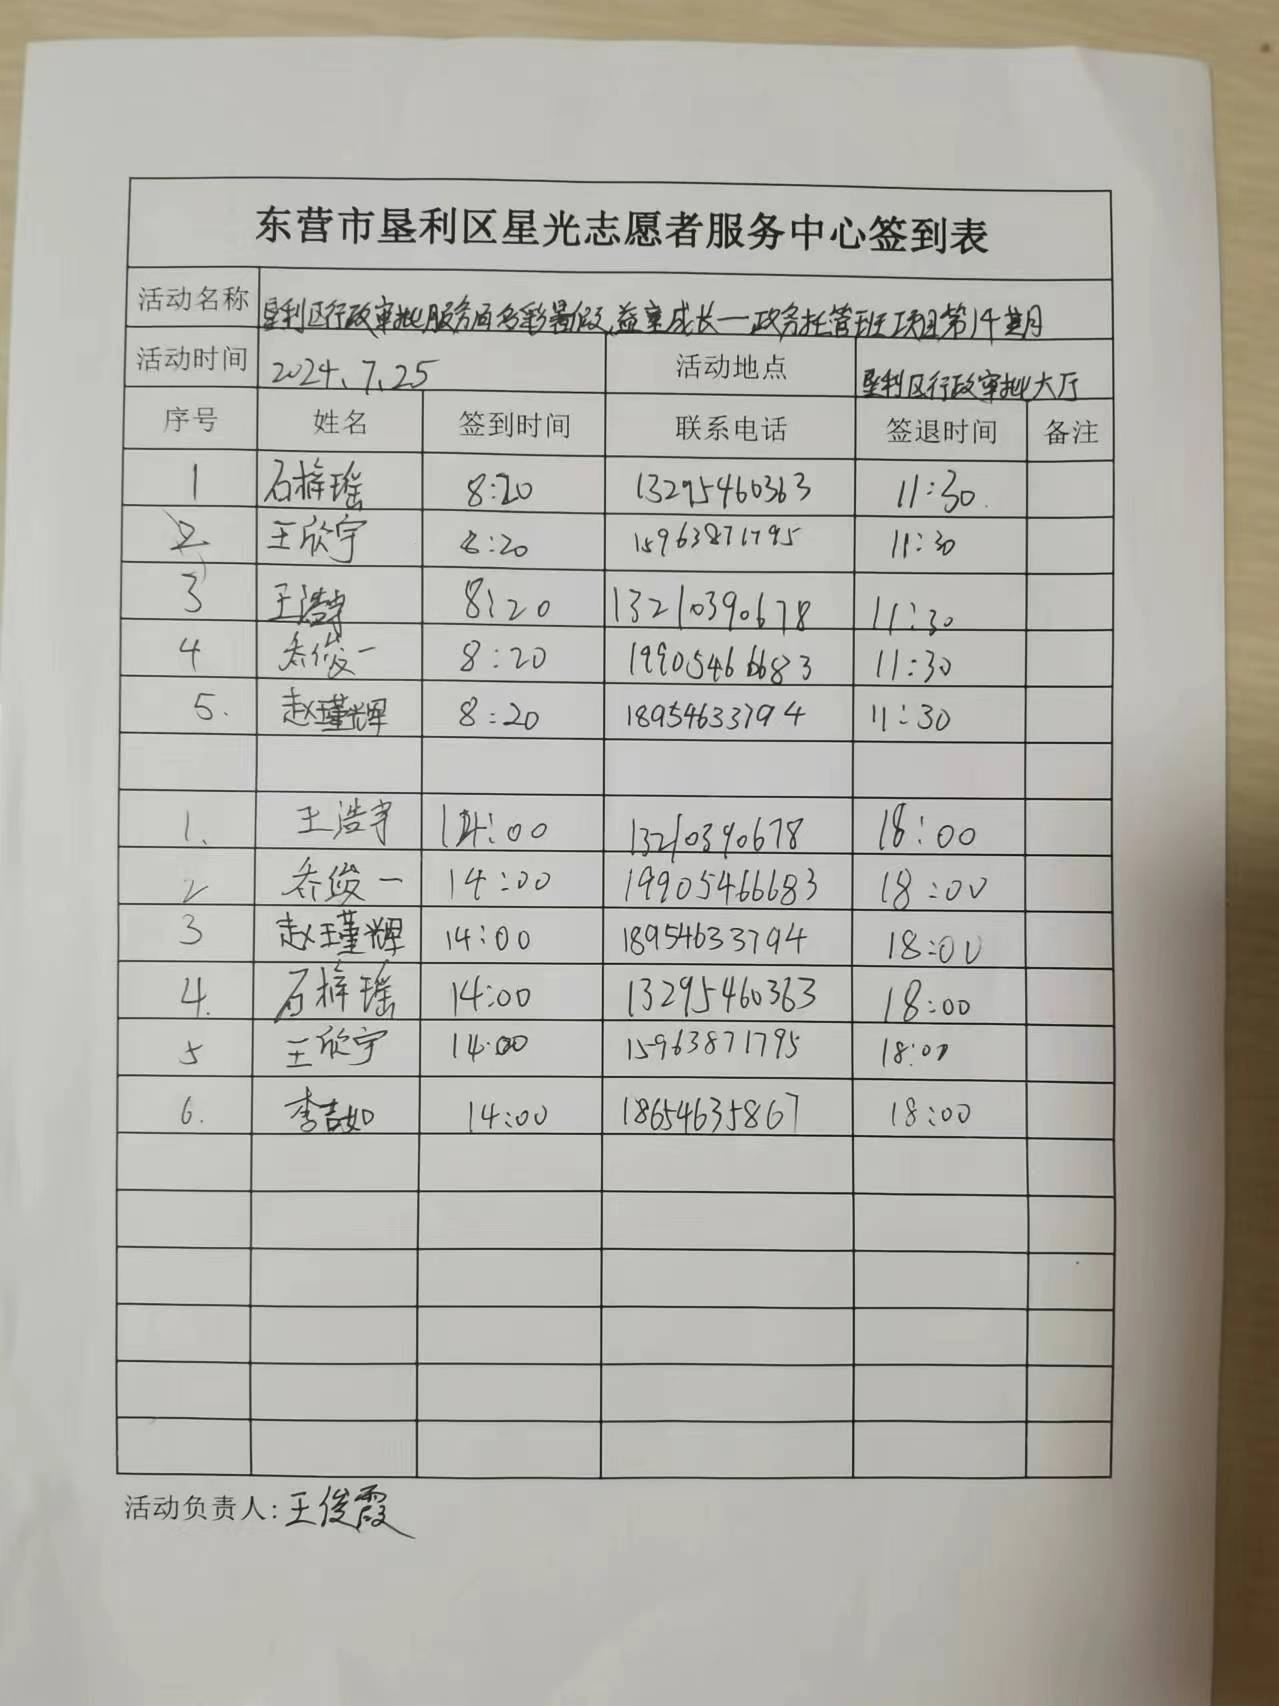 东营市垦利区星光志愿者服务中心签到表
活动名称 垦利区行政审批服务局多彩暑假,益童成长一政务托管班项目第14期
活动时间 2024、7、25 活动地点 垦利区行政审批大厅
序号 姓名 签到时间 联系电话 签退时间 备注
1 石梓瑶 8:20 13295460363 11:30.
2 王欣宇 8:20 15963871795 11:30
3 王浩宇 8:20 13210390678 11:30
4 乔俊一 8:20 19905466683 11:30
5. 赵瑾辉 8:20 18954633794 11:30
1. 王浩宇 14:00 13210390678 18:00
2 乔俊一 14:00 19905466683 18:00
3 赵瑾辉 14:00 18954633794 18:00
4. 石梓瑶 14:00 13295460363 18:00
5 王欣宇 14:00 15963871795 18:00
6. 李喆如 14:00 18654635867 18:00
活动负责人:王俊霞